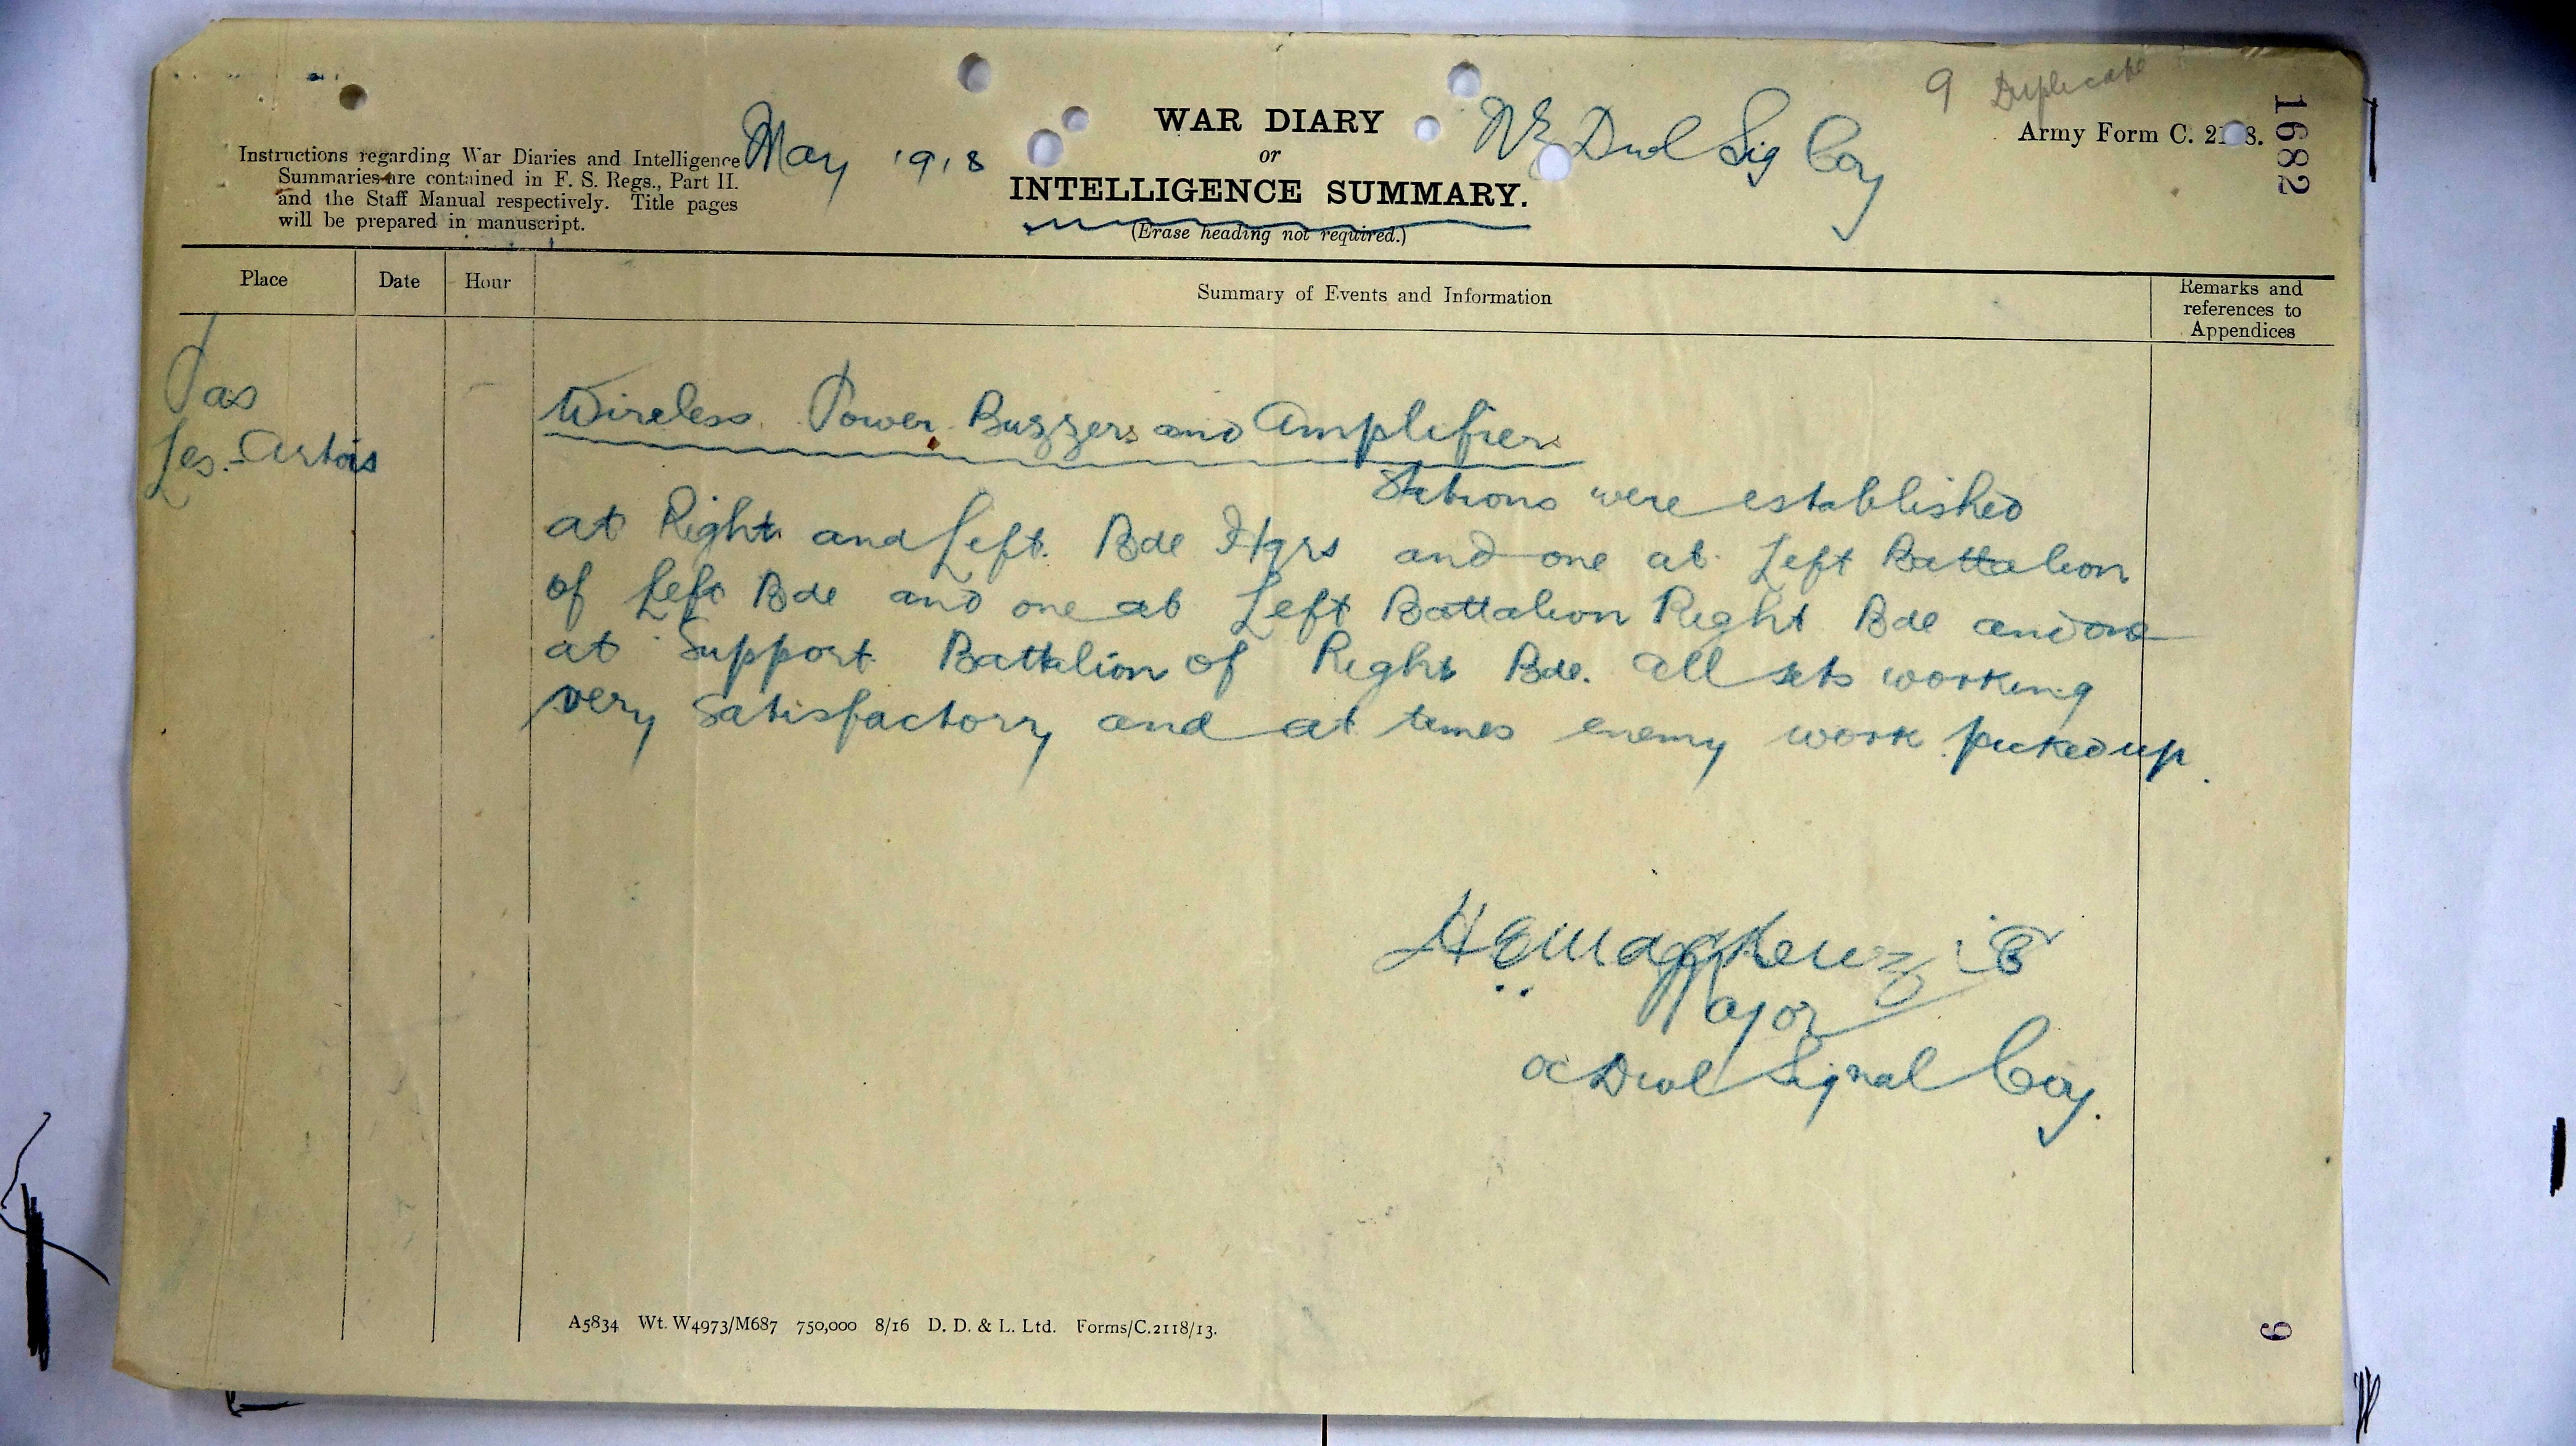 9 Duplicate
1682
Army Form C. 2118.
WAR DIARY
or
INTELLIGENCE SUMMARY.
(Erase heading not required.)
May 1918
NZ Divl Sig Coy
Instructions regarding War Diaries and Intelligence
Summaries are contained in F. S. Regs., Part II.
and the Staff Manual respectively. Title pages
will be prepared in manuscript.
Place
Date
Hour
Summary of Events and Information
Remarks and
references to
Appendices
Pas
Les-Artois
Wireless. Power Buzzers and Amplifiers
Stations were established
at Right and Left Bde Hqrs and one at Left Battalion
of Left Bde and one at Left Battalion Right Bde and one
at Support Battalion of Right Bde. All sets working
very satisfactory and at times enemy work picked up.
Major
OC Divl Signal Coy.
A5834 Wt. W4973/M687 750,000 8/16 D. D. & L. Ltd. Forms/C.2118/13.
9